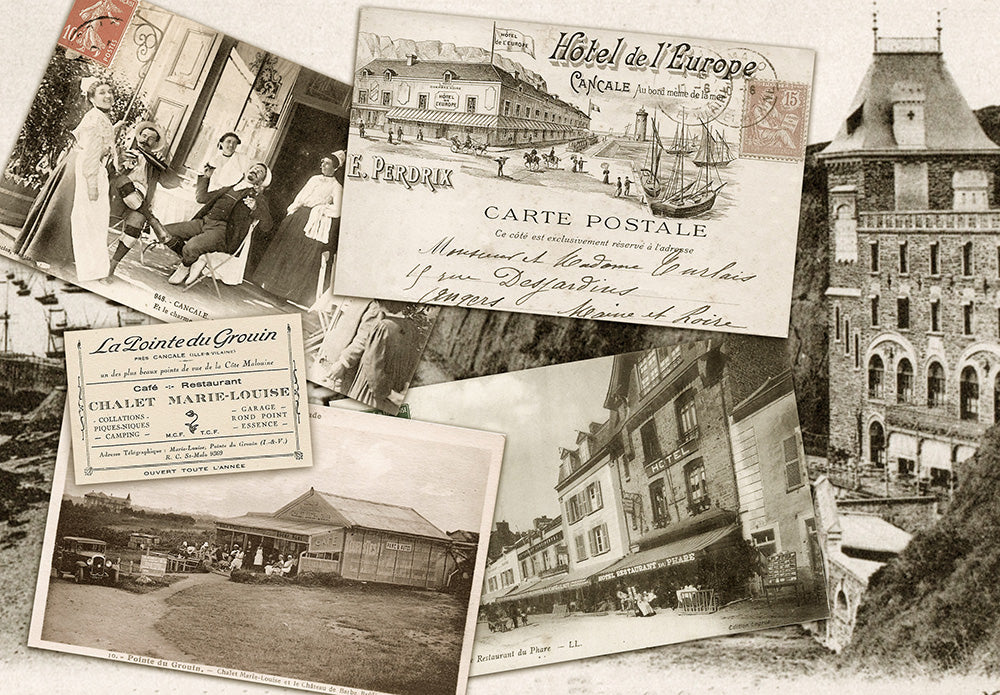 10
POSTES
948. - CANCALE
Et le charme
HÔTEL
de l'EUROPE
Hôtel de l'Europe
CANCALE Au bord même de la mer
15
HÔTEL
de
L'EUROPE
E. PERDRIX
CARTE POSTALE
Ce côté est exclusivement réservé à l'adresse
Monsieur et Madame
15 rue Desjardins
Angers Maine et Loire
La Pointe du Grouin
PRÈS CANCALE (ILLE-&-VILAINE)
un des plus beaux points de vue de la Côte Malouine
Café -:- Restaurant
CHALET MARIE-LOUISE
- COLLATIONS -
PIQUES-NIQUES
- CAMPING -
M.C.F. T.C.F.
- GARAGE -
ROND POINT
- ESSENCE -
Adresse Télégraphique : Marie-Louise, Pointe du Grouin (I.-&-V.)
R. C. St-Malo 9369
OUVERT TOUTE L'ANNÉE
10. - Pointe du Grouin. — Chalet Marie-Louise et le Château de Barbe
HOTEL
HOTEL RESTAURANT DU PHARE
Restaurant du Phare — LL.